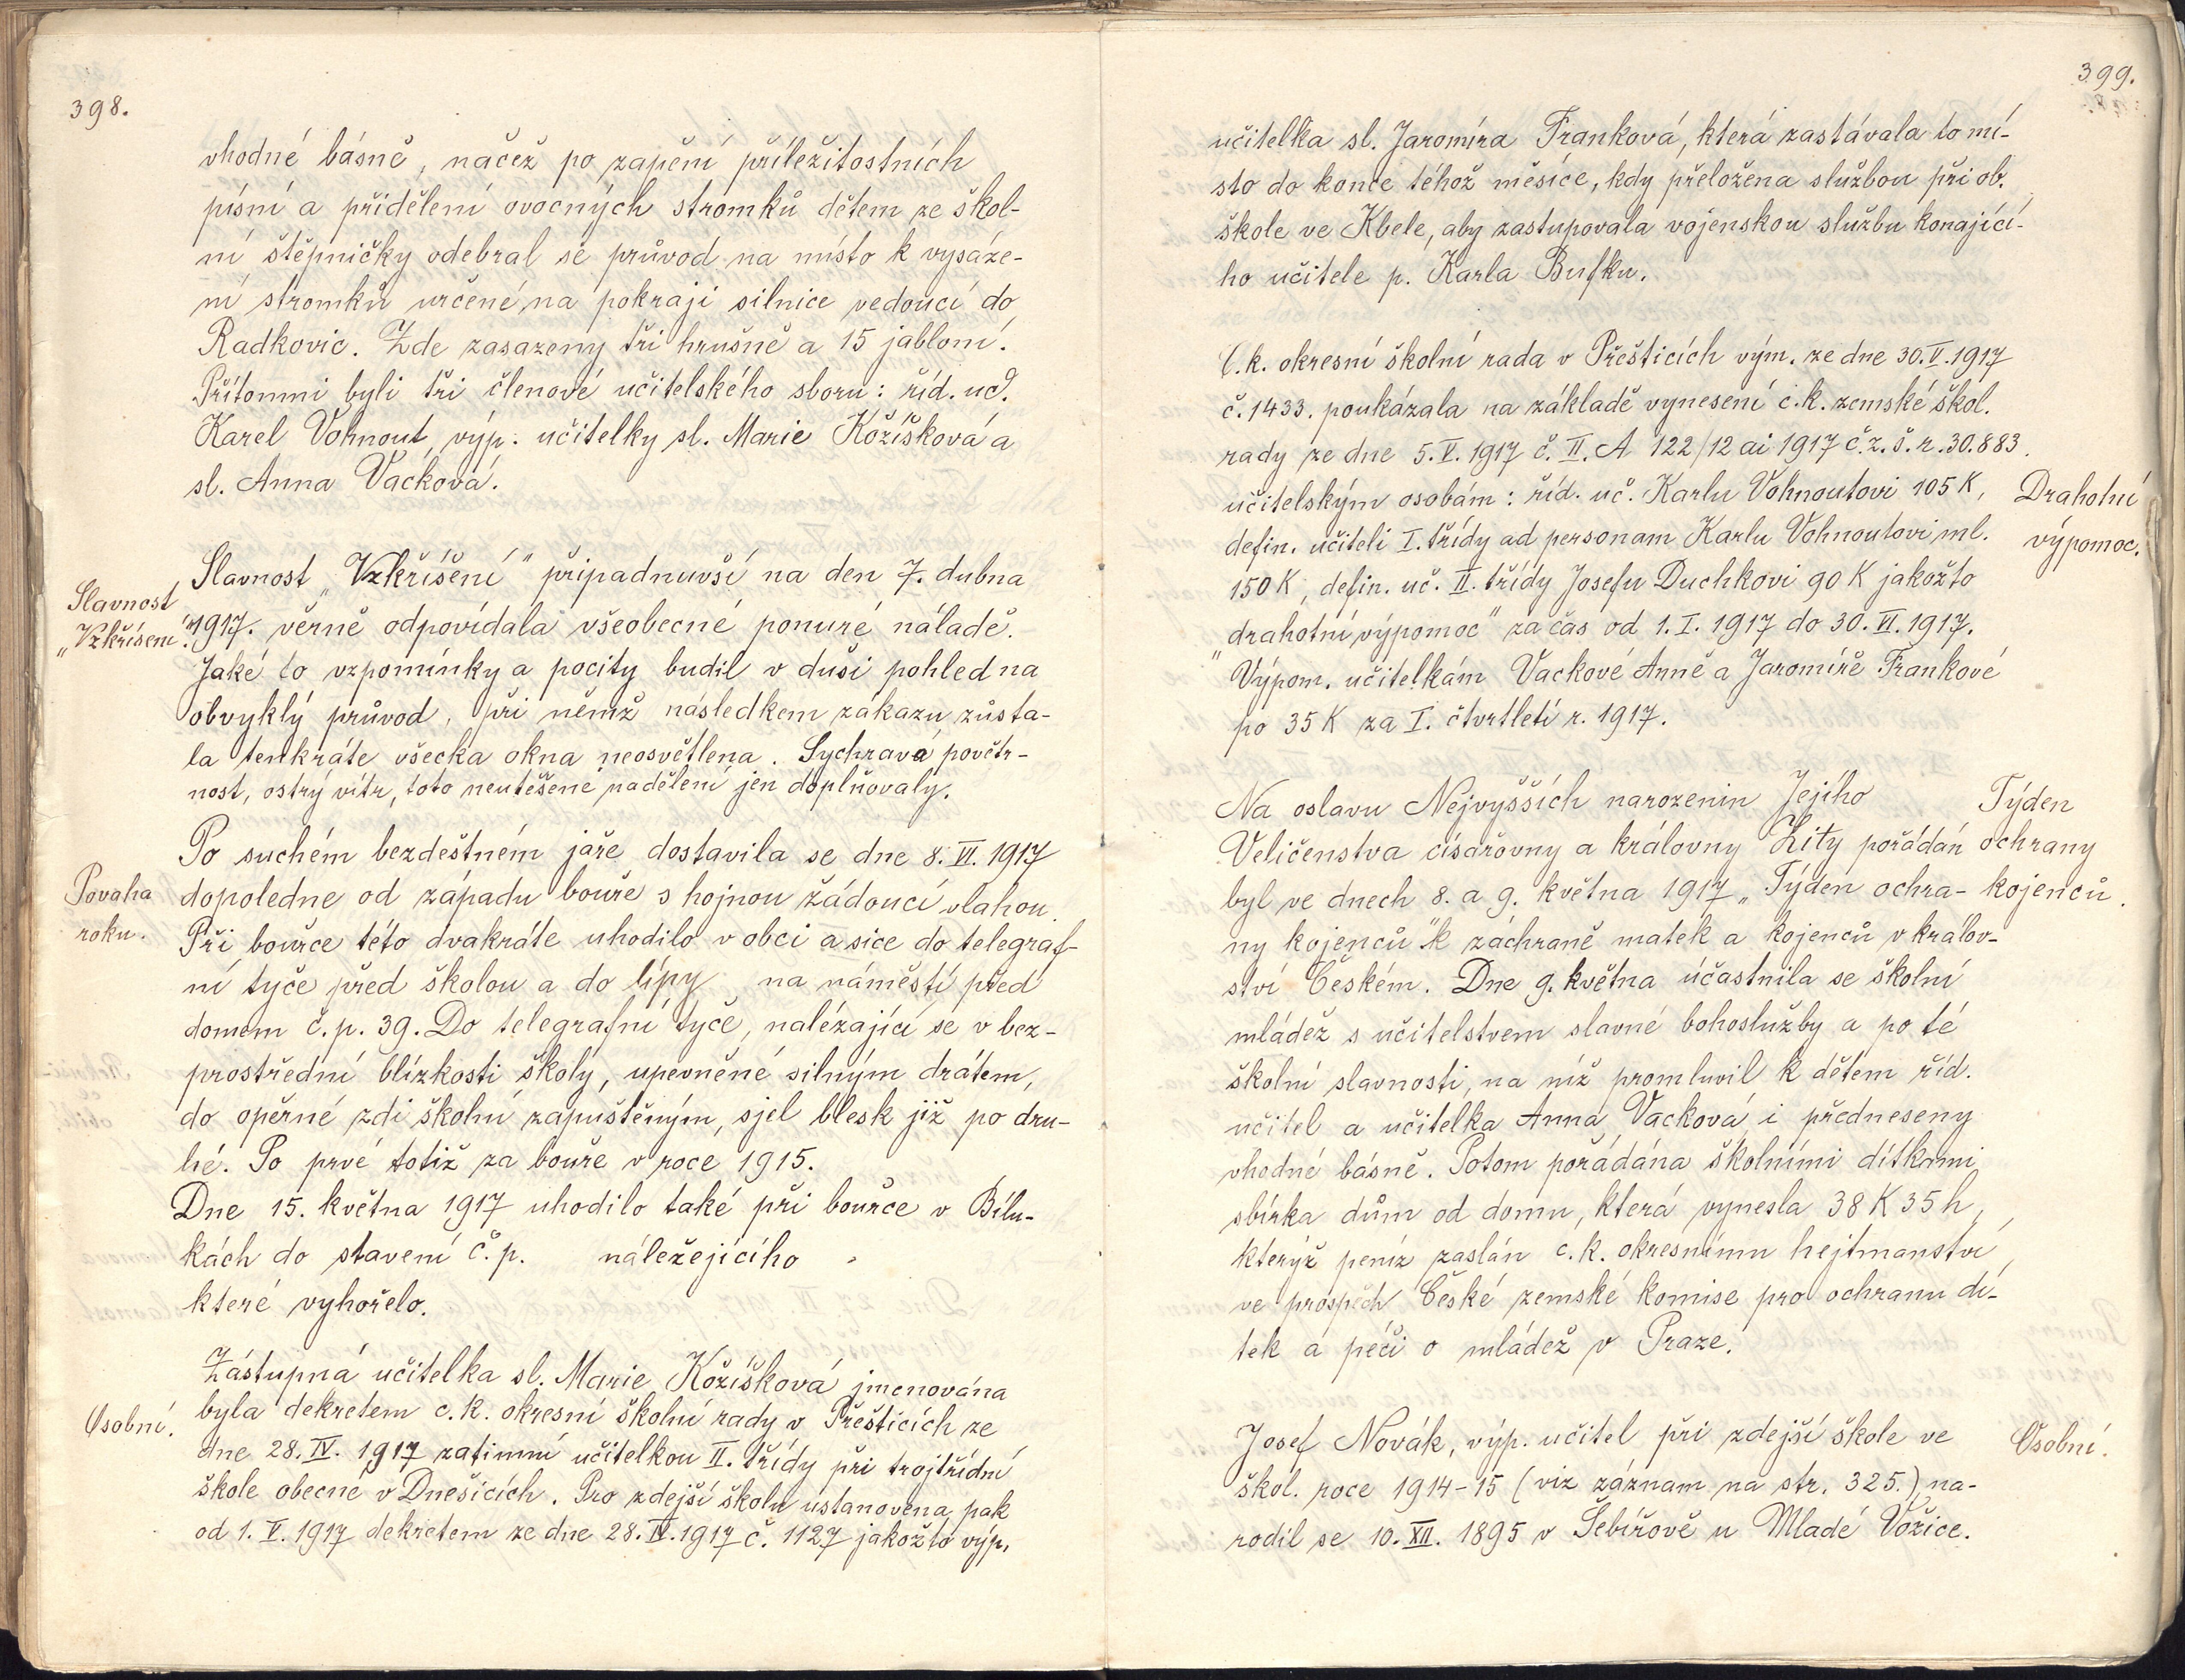 398.
vhodné básně, načež po zapění příležitostních
písní a přidělení ovocných stromků dětem ze škol-
ní štěpničky odebral se průvod na místo k vysáze-
ní stromků určené na pokraji silnice vedoucí do
Radkovic. Zde zasazeny tři hrušně a 15 jabloní.
Přítomni byli tři členové učitelského sboru: říd. uč.
Karel Vohnout, výp. učitelky sl. Marie Kožíšková a
sl. Anna Vacková.
Slavnost
„Vzkříšení".
Slavnost „Vzkříšení" připadnuvší na den 7. dubna
1917. věrně odpovídala všeobecné ponuré náladě.
Jaké to vzpomínky a pocity budil v duši pohled na
obvyklý průvod, při němž následkem zákazu zůsta-
la tenkráte všecka okna neosvětlena. Sychravá povětr-
nost, ostrý vítr, toto neutěšené nadělení jen doplňovaly.
Povaha
roku.
Po suchém bezdeštném jaře dostavila se dne 8. VI. 1917
dopoledne od západu bouře s hojnou žádoucí vlahou.
Při bouřce této dvakráte uhodilo v obci a sice do telegraf-
ní tyče před školou a do lípy na náměstí před
domem č. p. 39. Do telegrafní tyče, nalézající se v bez-
prostřední blízkosti školy, upevněné silným drátem,
do opěrné zdi školní zapuštěným, sjel blesk již po dru-
hé. Po prvé totiž za bouře v roce 1915.
Dne 15. května 1917 uhodilo také při bouřce v Bílu-
kách do stavení č. p. náležejícího
které vyhořelo.
Osobní.
Zástupná učitelka sl. Marie Kožíšková jmenována
byla dekretem c. k. okresní školní rady v Přešticích ze
dne 28. IV. 1917 zatimní učitelkou II. třídy při trojtřídní
škole obecné v Dnešicích. Pro zdejší školu ustanovena pak
od 1. V. 1917 dekretem ze dne 28. IV. 1917 č. 1127 jakožto výp.
399.
učitelka sl. Jaromíra Franková, která zastávala to mí-
sto do konce téhož měsíce, kdy přeložena službou při ob.
škole ve Kbele, aby zastupovala vojenskou službu konající-
ho učitele p. Karla Bufku.
C. k. okresní školní rada v Přešticích vým. ze dne 30. V. 1917
č. 1433. poukázala na základě vynesení c. k. zemské škol.
rady ze dne 5. V. 1917 č. II. A 122/12 ai 1917 č. z. š. r. 30.883.
učitelským osobám: říd. uč. Karlu Vohnoutovi 105 K,
defin. učiteli I. třídy ad personam Karlu Vohnoutovi ml.
150 K, defin. uč. II. třídy Josefu Duchkovi 90 K jakožto
„drahotní výpomoc" za čas od 1. I. 1917 do 30. VI. 1917.
Výpom. učitelkám Vackové Anně a Jaromíře Frankové
po 35 K za I. čtvrtletí r. 1917.
Drahotní
výpomoc.
Na oslavu Nejvyšších narozenin Jejího
Veličenstva císařovny a královny Zity pořádán
byl ve dnech 8. a 9. května 1917 „Týden ochra-
ny kojenců" k záchraně matek a kojenců v králov-
ství Českém. Dne 9. května účastnila se školní
mládež s učitelstvem slavné bohoslužby a po té
školní slavnosti, na níž promluvil k dětem říd.
učitel a učitelka Anna Vacková i předneseny
vhodné básně. Potom pořádána školními dítkami
sbírka dům od domu, která vynesla 38 K 35 h,
kterýž peníz zaslán c. k. okresnímu hejtmanství,
ve prospěch České zemské komise pro ochranu dí-
tek a péči o mládež v Praze.
Týden
ochrany
kojenců.
Josef Novák, výp. učitel při zdejší škole ve
škol. roce 1914-15 (viz záznam na str. 325.) na-
rodil se 10. XII. 1895 v Šebířově u Mladé Vožice.
Osobní.